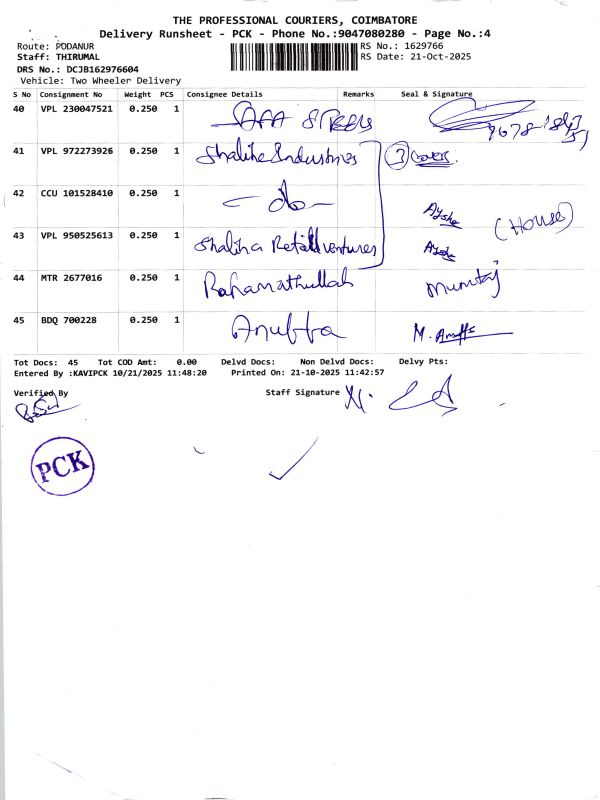 THE PROFESSIONAL COURIERS, COIMBATORE
Delivery Runsheet - PCK - Phone No.:9047080280 - Page No.:4
Route: PODANUR
RS No.: 1629766
Staff: THIRUMAL
RS Date: 21-Oct-2025
DRS No.: DCJB162976604
Vehicle: Two Wheeler Delivery
S No Consignment No Weight PCS Consignee Details Remarks Seal & Signature
40 VPL 230047521 0.250 1
41 VPL 972273926 0.250 1 Shaliha Industries 3 covers.
42 CCU 101528410 0.250 1 - do - Aysha (House)
43 VPL 950525613 0.250 1 Shaliha Retail ventures Aysha
44 MTR 2677016 0.250 1 Rahamathullah Mumtaj
45 BDQ 700228 0.250 1
Tot Docs: 45 Tot COD Amt: 0.00 Delvd Docs: Non Delvd Docs: Delvy Pts:
Entered By :KAVIPCK 10/21/2025 11:48:20 Printed On: 21-10-2025 11:42:57
Verified By Staff Signature
PCK